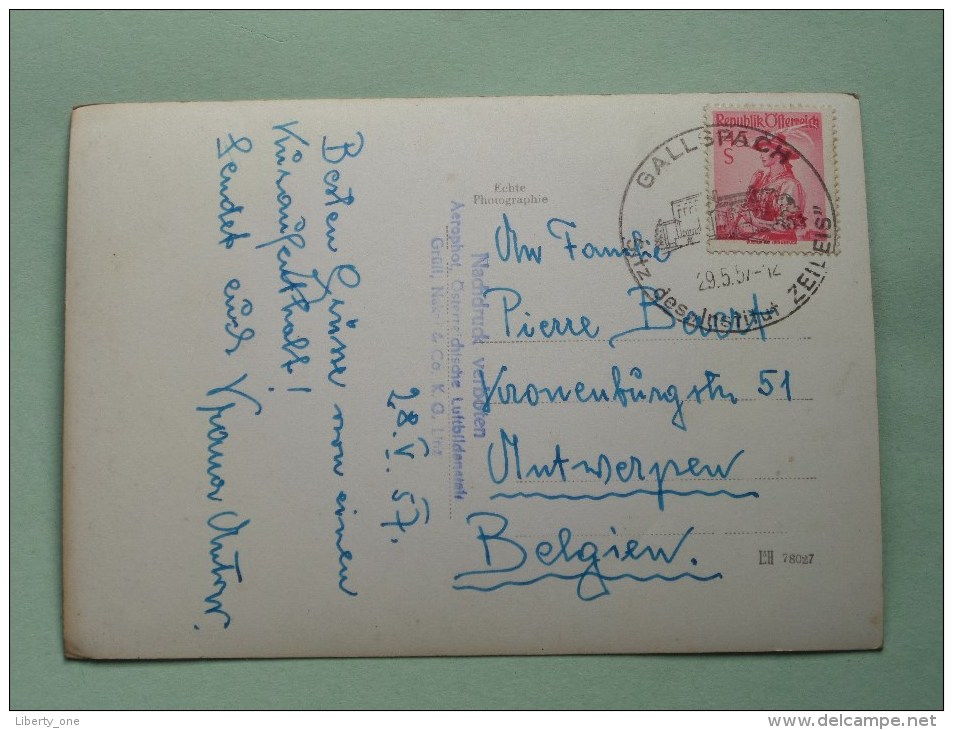 Besten Grüsse von einem
Kuraufenthalt!
sendet euch
28.V.57.
Echte
Photographie
Nachdruck verboten
Aerophot. Österreichische Luftbildanstalt
& Co. K. G., Linz
Republik Österreich
S
GALLSPACH
Sitz des „Institut ZEILEIS"
29.5.57-12
An Familie
Pierre
Kronenburgstr. 51
Antwerpen
Belgien.
78027
Liberty_one
www.delcampe.net